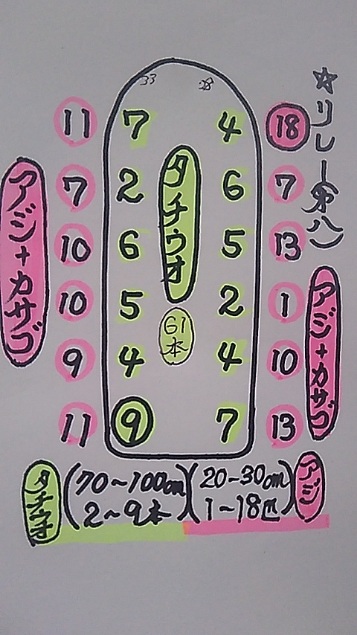 ☆リレー(第八)
33 28
11 7 4 18
7 2 6 7
10 6 5 13
10 5 2 1
9 4 4 10
11 9 7 13
アジ+カサゴ
タチウオ
61本
アジ+カサゴ
タチウオ
(70〜100cm)
(2〜9本)
(20〜30cm)
(1〜18匹)
アジ